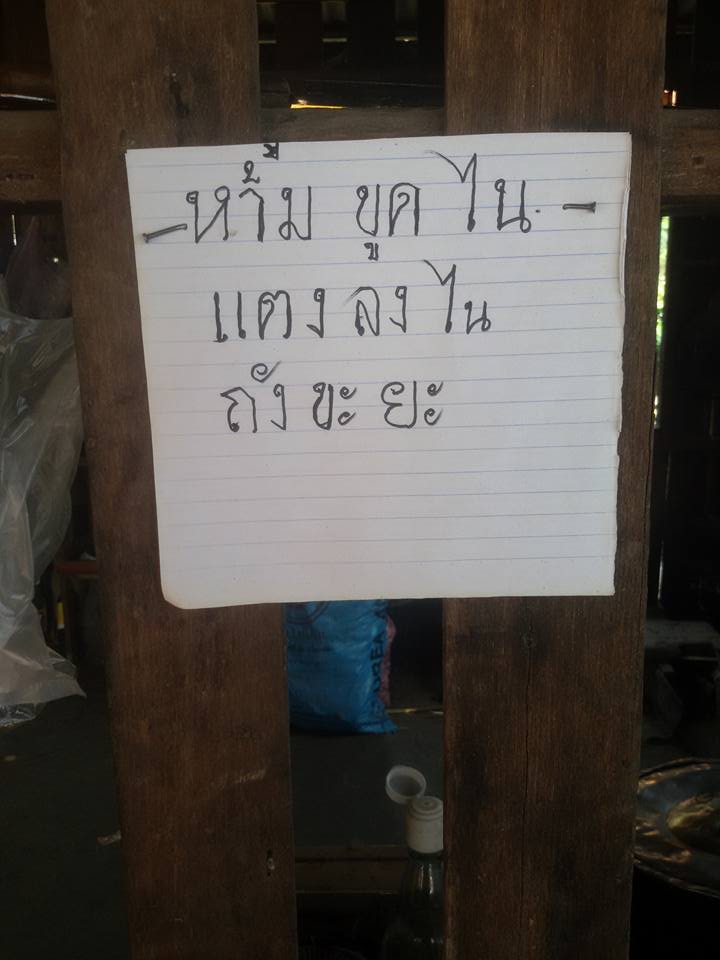 ห้าม ขูด ไน
แตง ลง ไน
ถัง ขะ ยะ